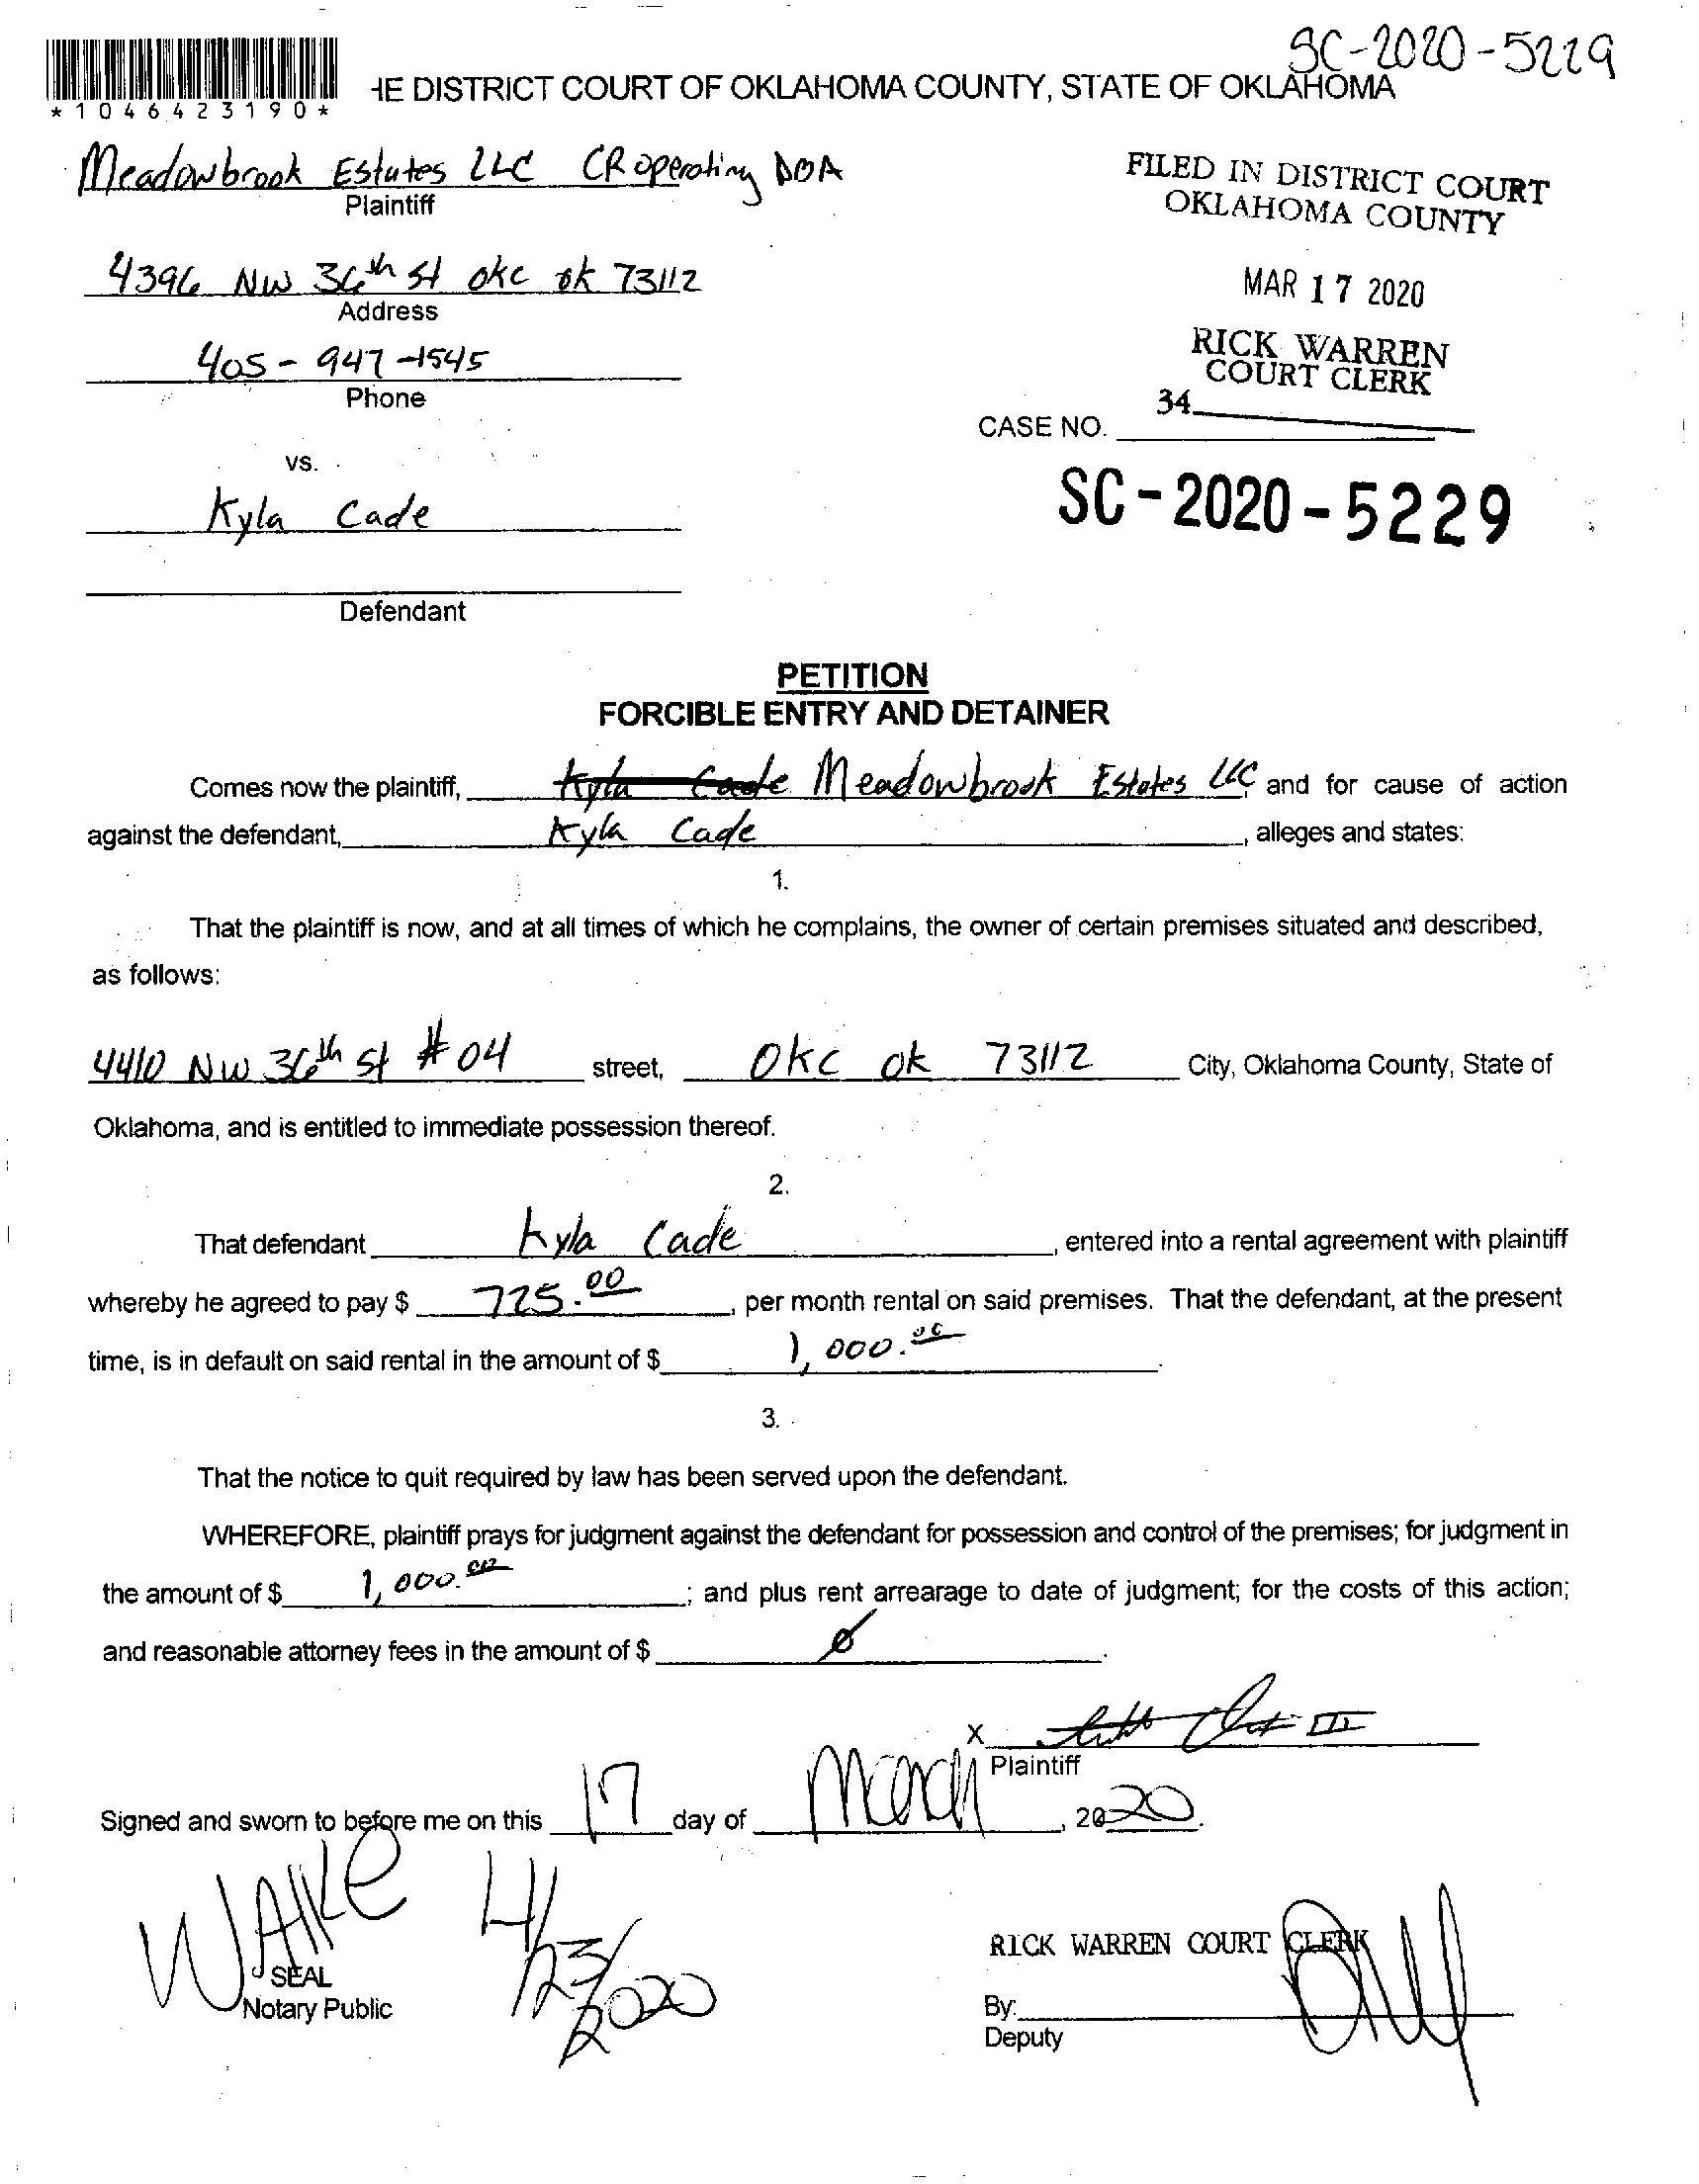 SC-2020-5229
*1046423190*
HE DISTRICT COURT OF OKLAHOMA COUNTY, STATE OF OKLAHOMA
Meadowbrook Estates LLC CR operating DBA
Plaintiff
FILED IN DISTRICT COURT
OKLAHOMA COUNTY
4396 NW 36th St okc ok 73112
Address
MAR 17 2020
405-947-1545
Phone
RICK WARREN
COURT CLERK
34
CASE NO.
vs.
SC-2020-5229
Kyla Cade
Defendant
PETITION
FORCIBLE ENTRY AND DETAINER
Comes now the plaintiff, Kyla Cade Meadowbrook Estates LLC and for cause of action
against the defendant, Kyla Cade, alleges and states:
1.
That the plaintiff is now, and at all times of which he complains, the owner of certain premises situated and described,
as follows:
4410 NW 36th St #04 street, OKC ok 73112 City, Oklahoma County, State of
Oklahoma, and is entitled to immediate possession thereof.
2.
That defendant Kyla Cade, entered into a rental agreement with plaintiff
whereby he agreed to pay $ 725.00, per month rental on said premises. That the defendant, at the present
time, is in default on said rental in the amount of $ 1,000.00.
3.
That the notice to quit required by law has been served upon the defendant.
WHEREFORE, plaintiff prays for judgment against the defendant for possession and control of the premises; for judgment in
the amount of $ 1,000.00; and plus rent arrearage to date of judgment; for the costs of this action;
and reasonable attorney fees in the amount of $ Ø.
X III
Plaintiff
Signed and sworn to before me on this 17 day of March, 2020.
WAlKe 4/23/2020
SEAL
Notary Public
RICK WARREN COURT CLERK
By:
Deputy